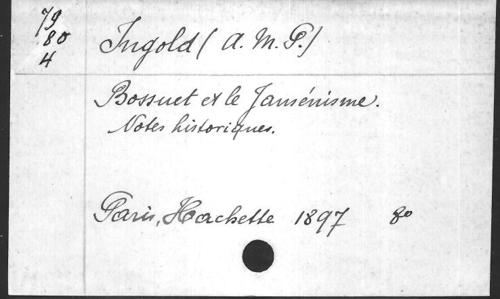 79
80
4
Ingold (A. M. P.)
Bossuet et le Jansénisme.
Notes historiques.
Paris, Hachette 1897 8o